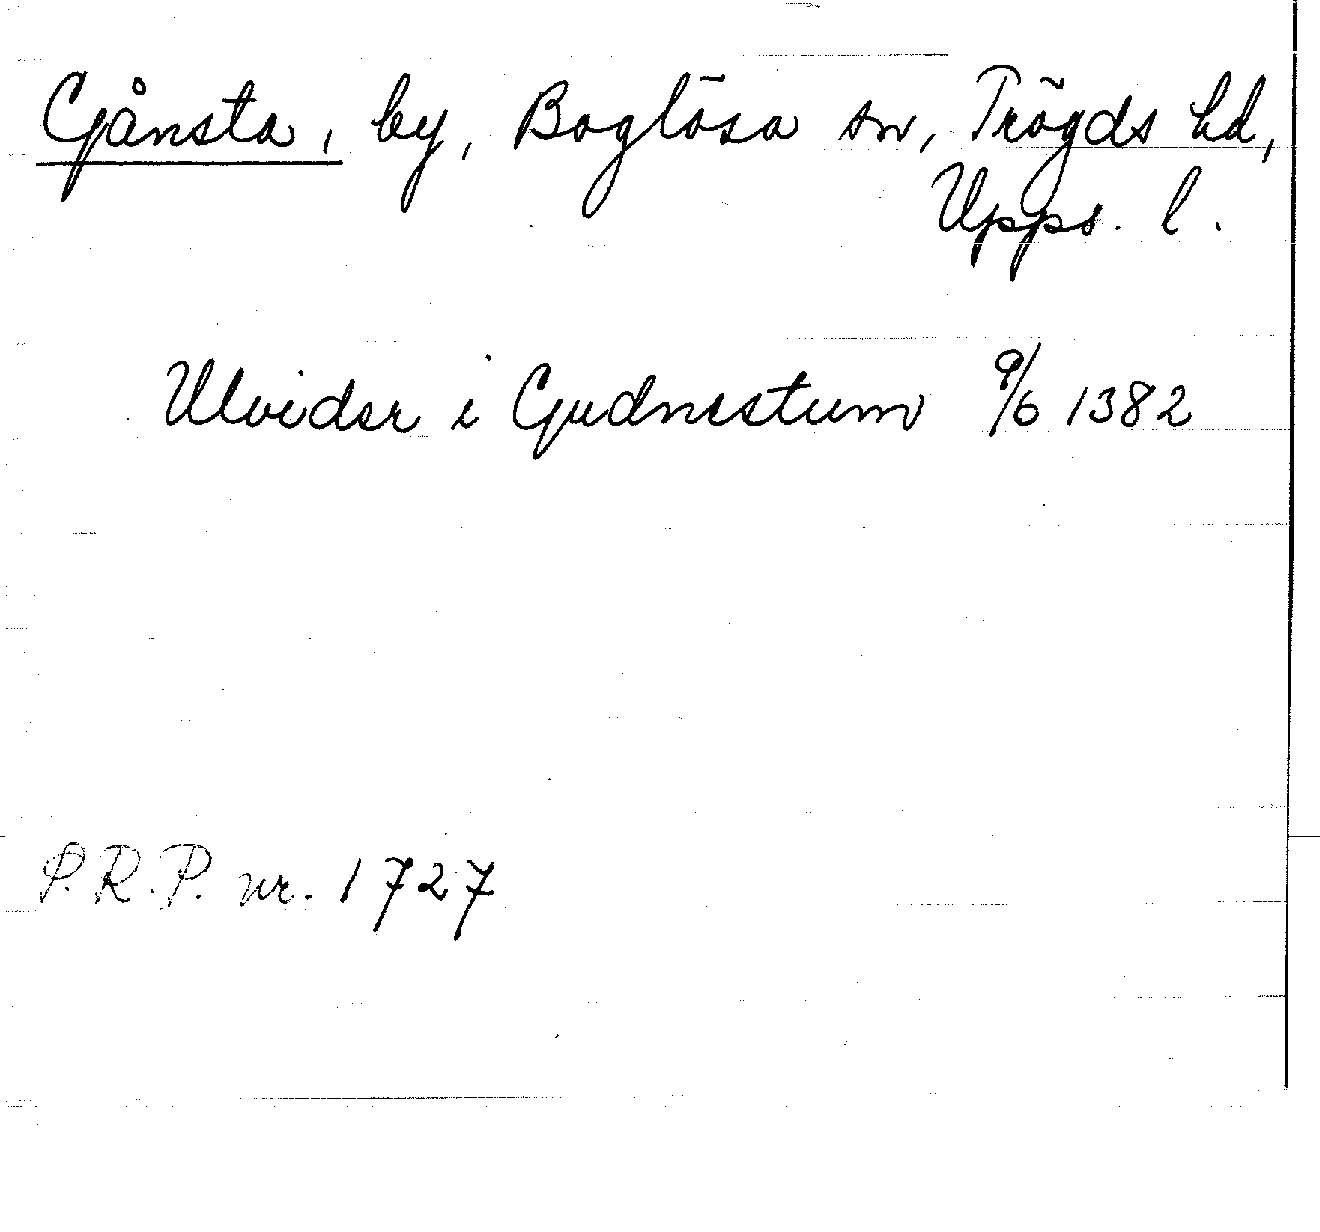 Gånsta, by, Boglösa sn, Trögds hd,
Upps. l.
Ulvider i Gudnestum 9/6 1382
S.R.P. nr. 1727